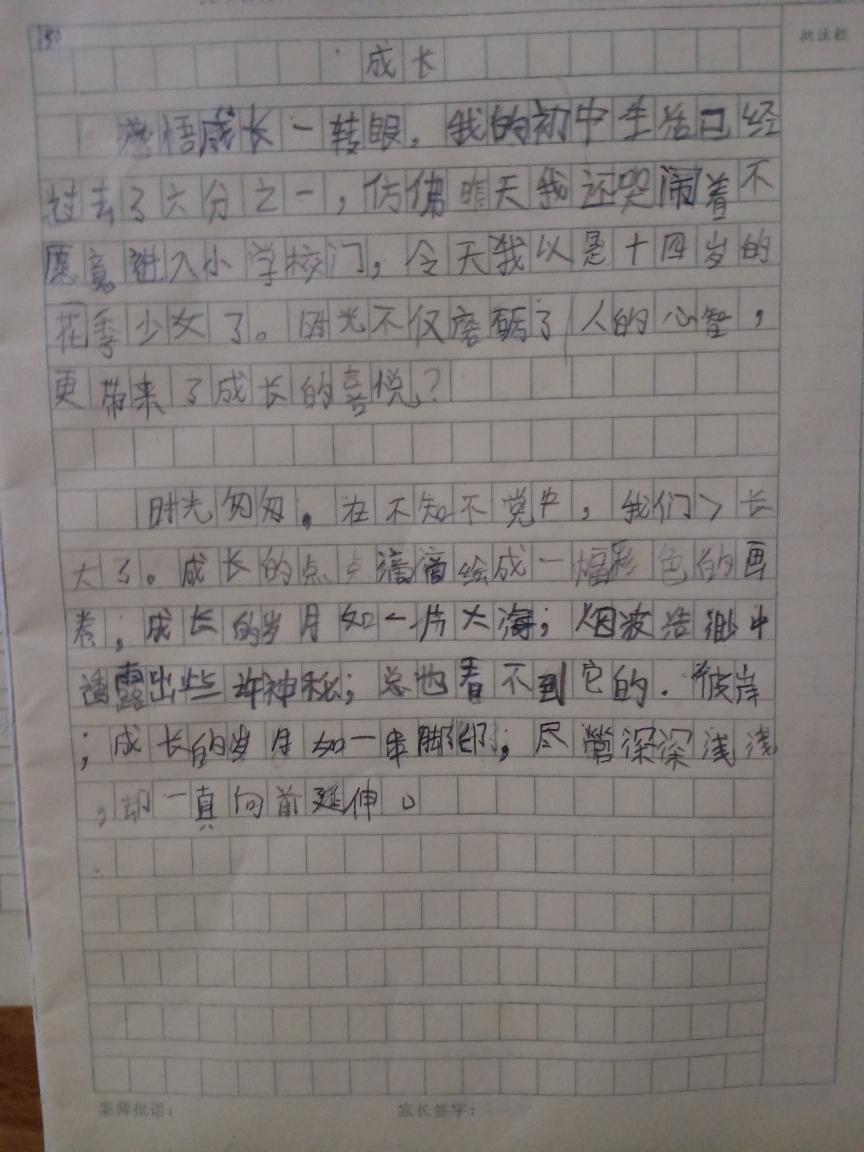 150
批注栏
成长
感悟成长一转眼，我的初中生活已经
过去了六分之一，仿佛昨天我还哭闹着不
愿意进入小学校门，今天我以是十四岁的
花季少女了。时光不仅磨砺了人的心智，
更带来了成长的喜悦？
时光匆匆。在不知不觉中，我们长
大了。成长的点点滴滴绘成一幅彩色的画
卷，成长的岁月如一片大海；烟波浩渺中
透露出些许神秘；总也看不到它的．彼岸
；成长的岁月如一串脚印；尽管深深浅浅
，却一真向前延伸。
老师批语：
家长签字：